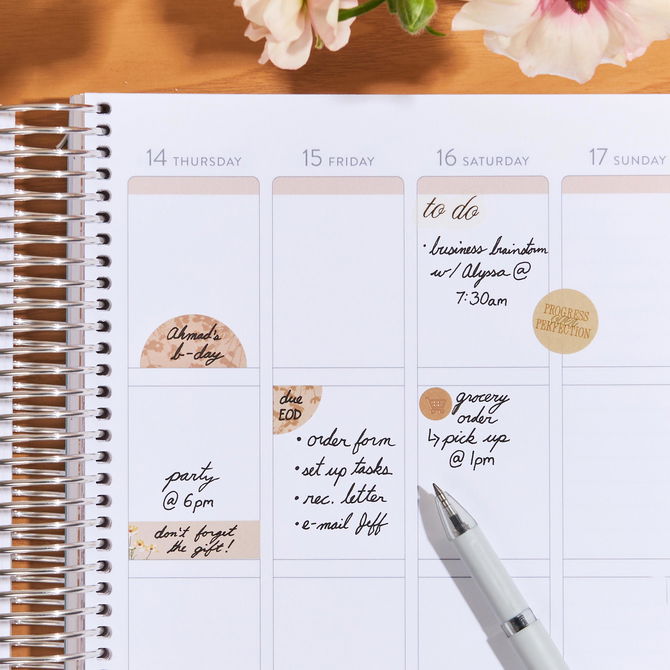 14 THURSDAY
15 FRIDAY
16 SATURDAY
17 SUNDAY
Ahmad's
b-day
party
@ 6pm
don't forget
the gift!
due
EOD
• order form
• set up tasks
• rec. letter
• e-mail Jeff
to do
• business brainstorm
w/ Alyssa @
7:30am
grocery
order
↳ pick up
@ 1pm
PROGRESS
over
PERFECTION